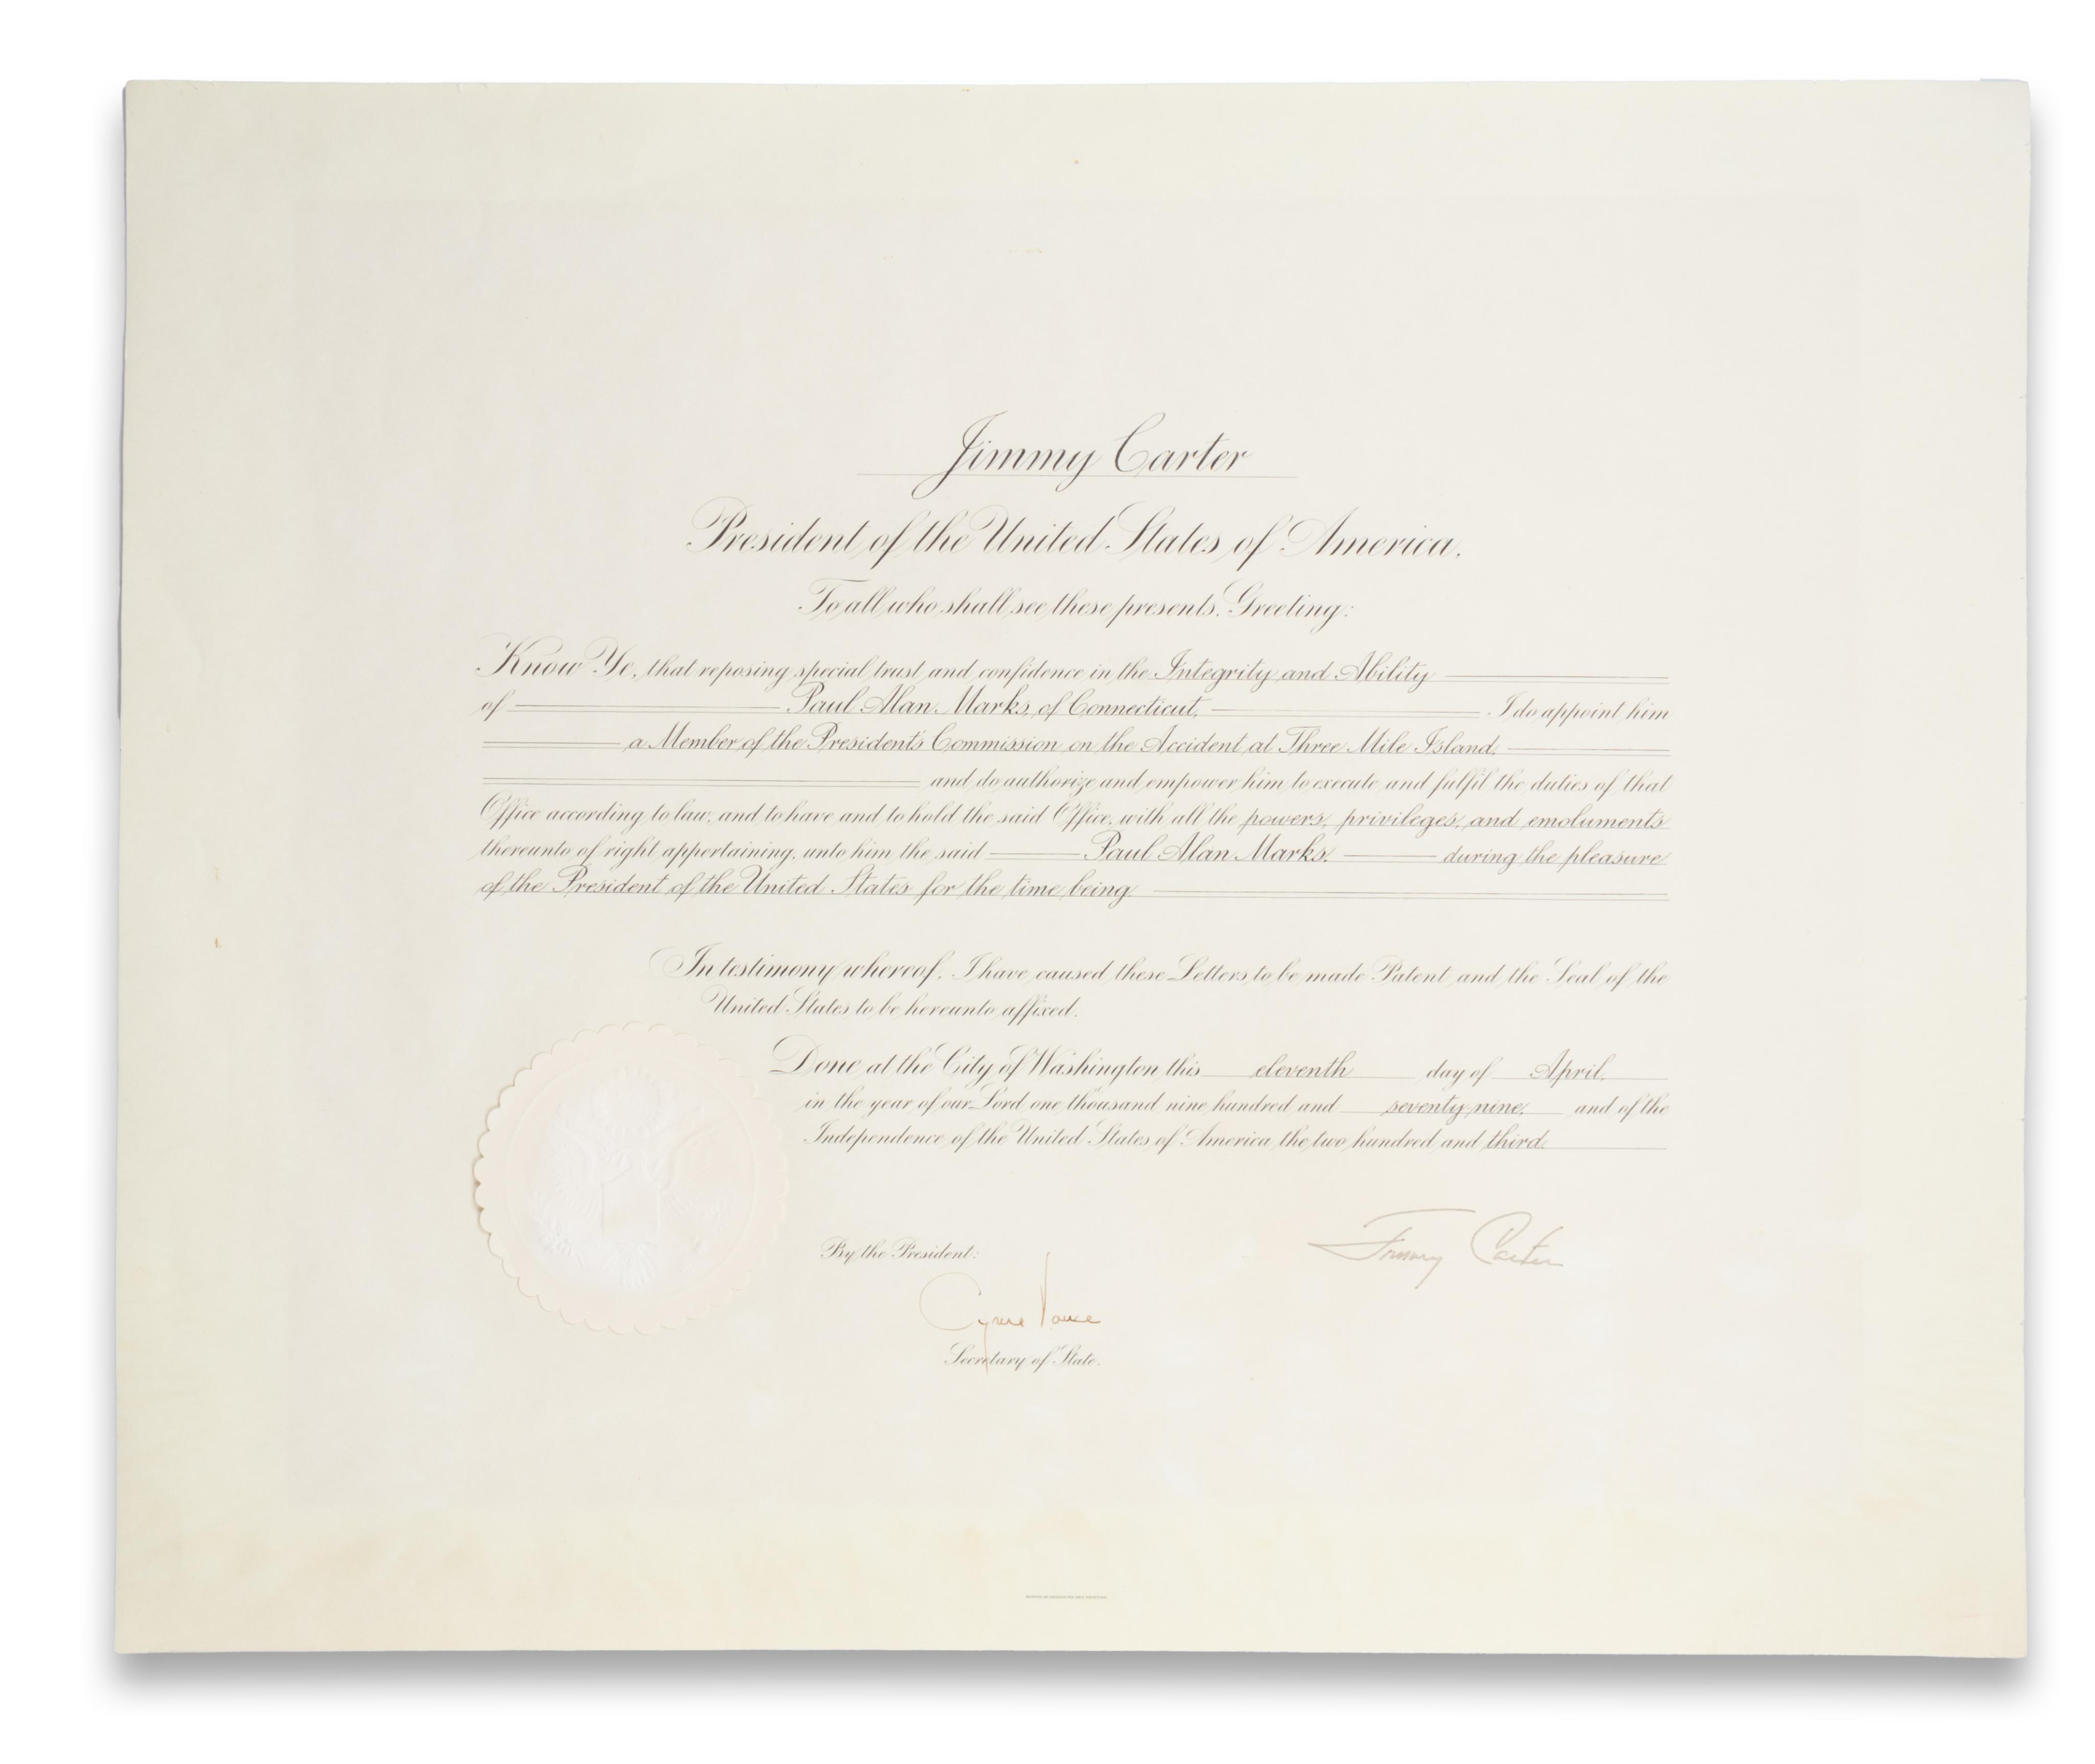 Jimmy Carter
President of the United States of America.
To all who shall see these presents, Greeting:
Know Ye, that reposing special trust and confidence in the Integrity and Ability
of Paul Alan Marks, of Connecticut, I do appoint him
a Member of the President's Commission on the Accident at Three Mile Island,
and do authorize and empower him to execute and fulfil the duties of that
Office according to law, and to have and to hold the said Office, with all the powers, privileges, and emoluments
thereunto of right appertaining, unto him the said Paul Alan Marks, during the pleasure
of the President of the United States for the time being.
In testimony whereof, I have caused these Letters to be made Patent and the Seal of the
United States to be hereunto affixed.
Done at the City of Washington this eleventh day of April,
in the year of our Lord one thousand nine hundred and seventy-nine, and of the
Independence of the United States of America the two hundred and third.
Jimmy Carter
By the President:
Cyrus Vance
Secretary of State.
BUREAU OF ENGRAVING AND PRINTING